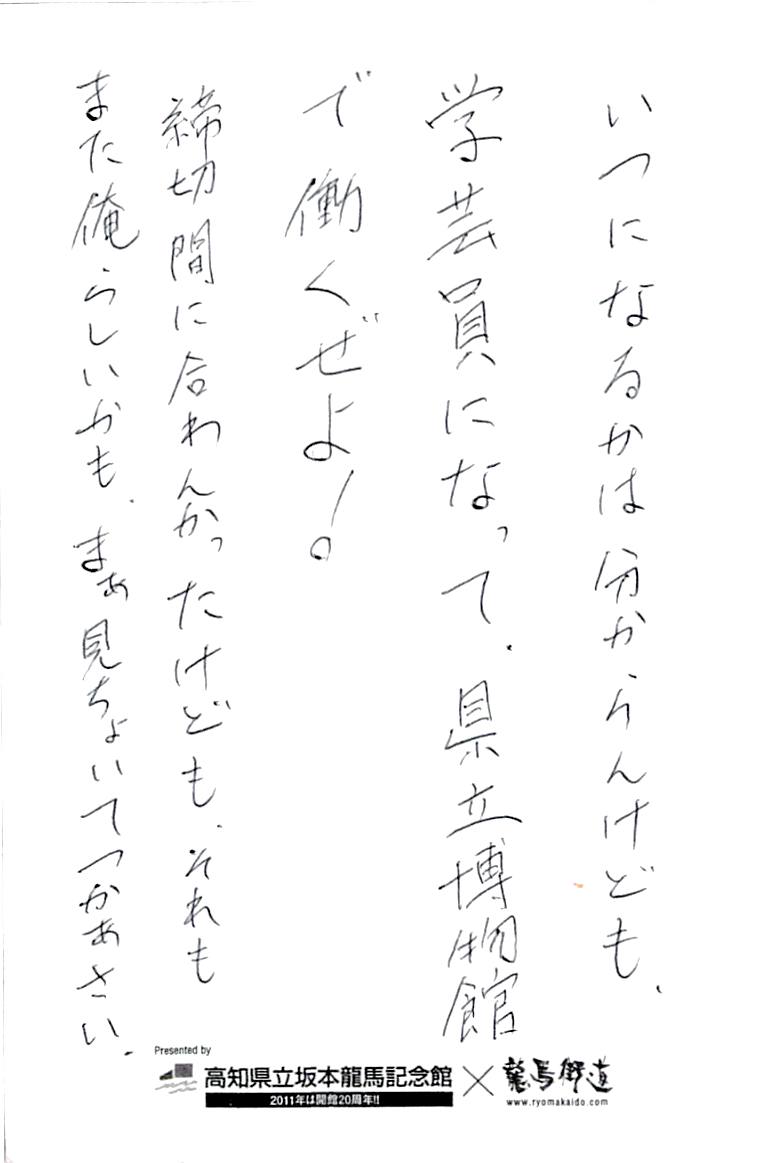 いつになるかは分からんけども、
学芸員になって、県立博物館
で働くぜよ!。
締切間に合わんかったけども、それも
また俺らしいかも、まぁ見ちょいてつかあさい、
Presented by
高知県立坂本龍馬記念館×龍馬街道
2011年は開館20周年!!
www.ryomakaido.com